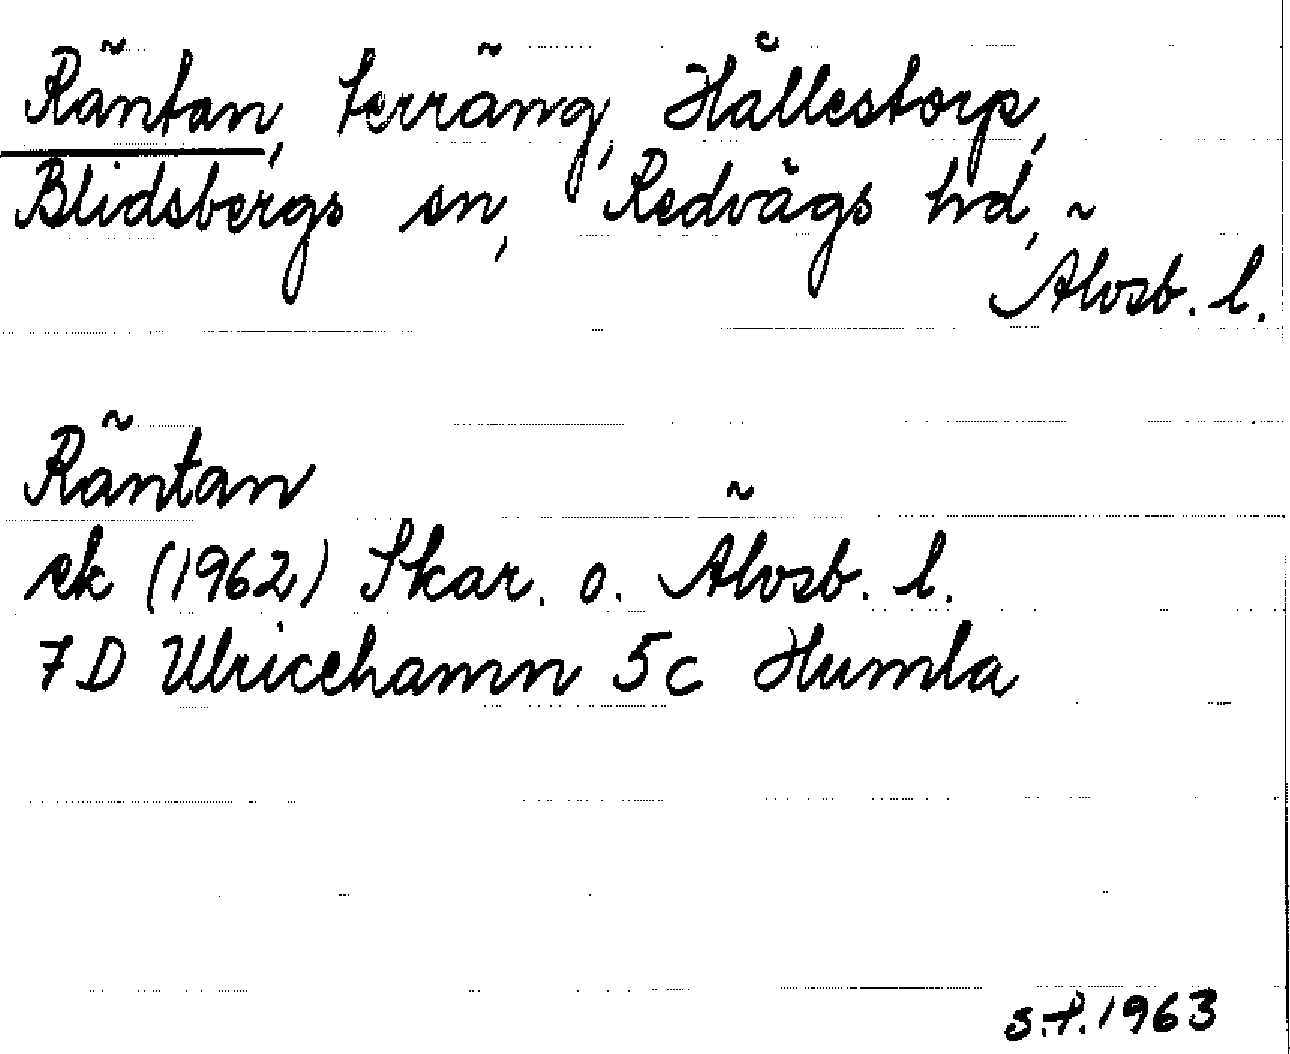 Räntan, terräng, Hållestorp,
Blidsbergs sn, Redvägs hd,
Älvsb. l.
Räntan
ek (1962) Skar. o. Älvsb. l.
7D Ulricehamn 5c Humla
S.F. 1963